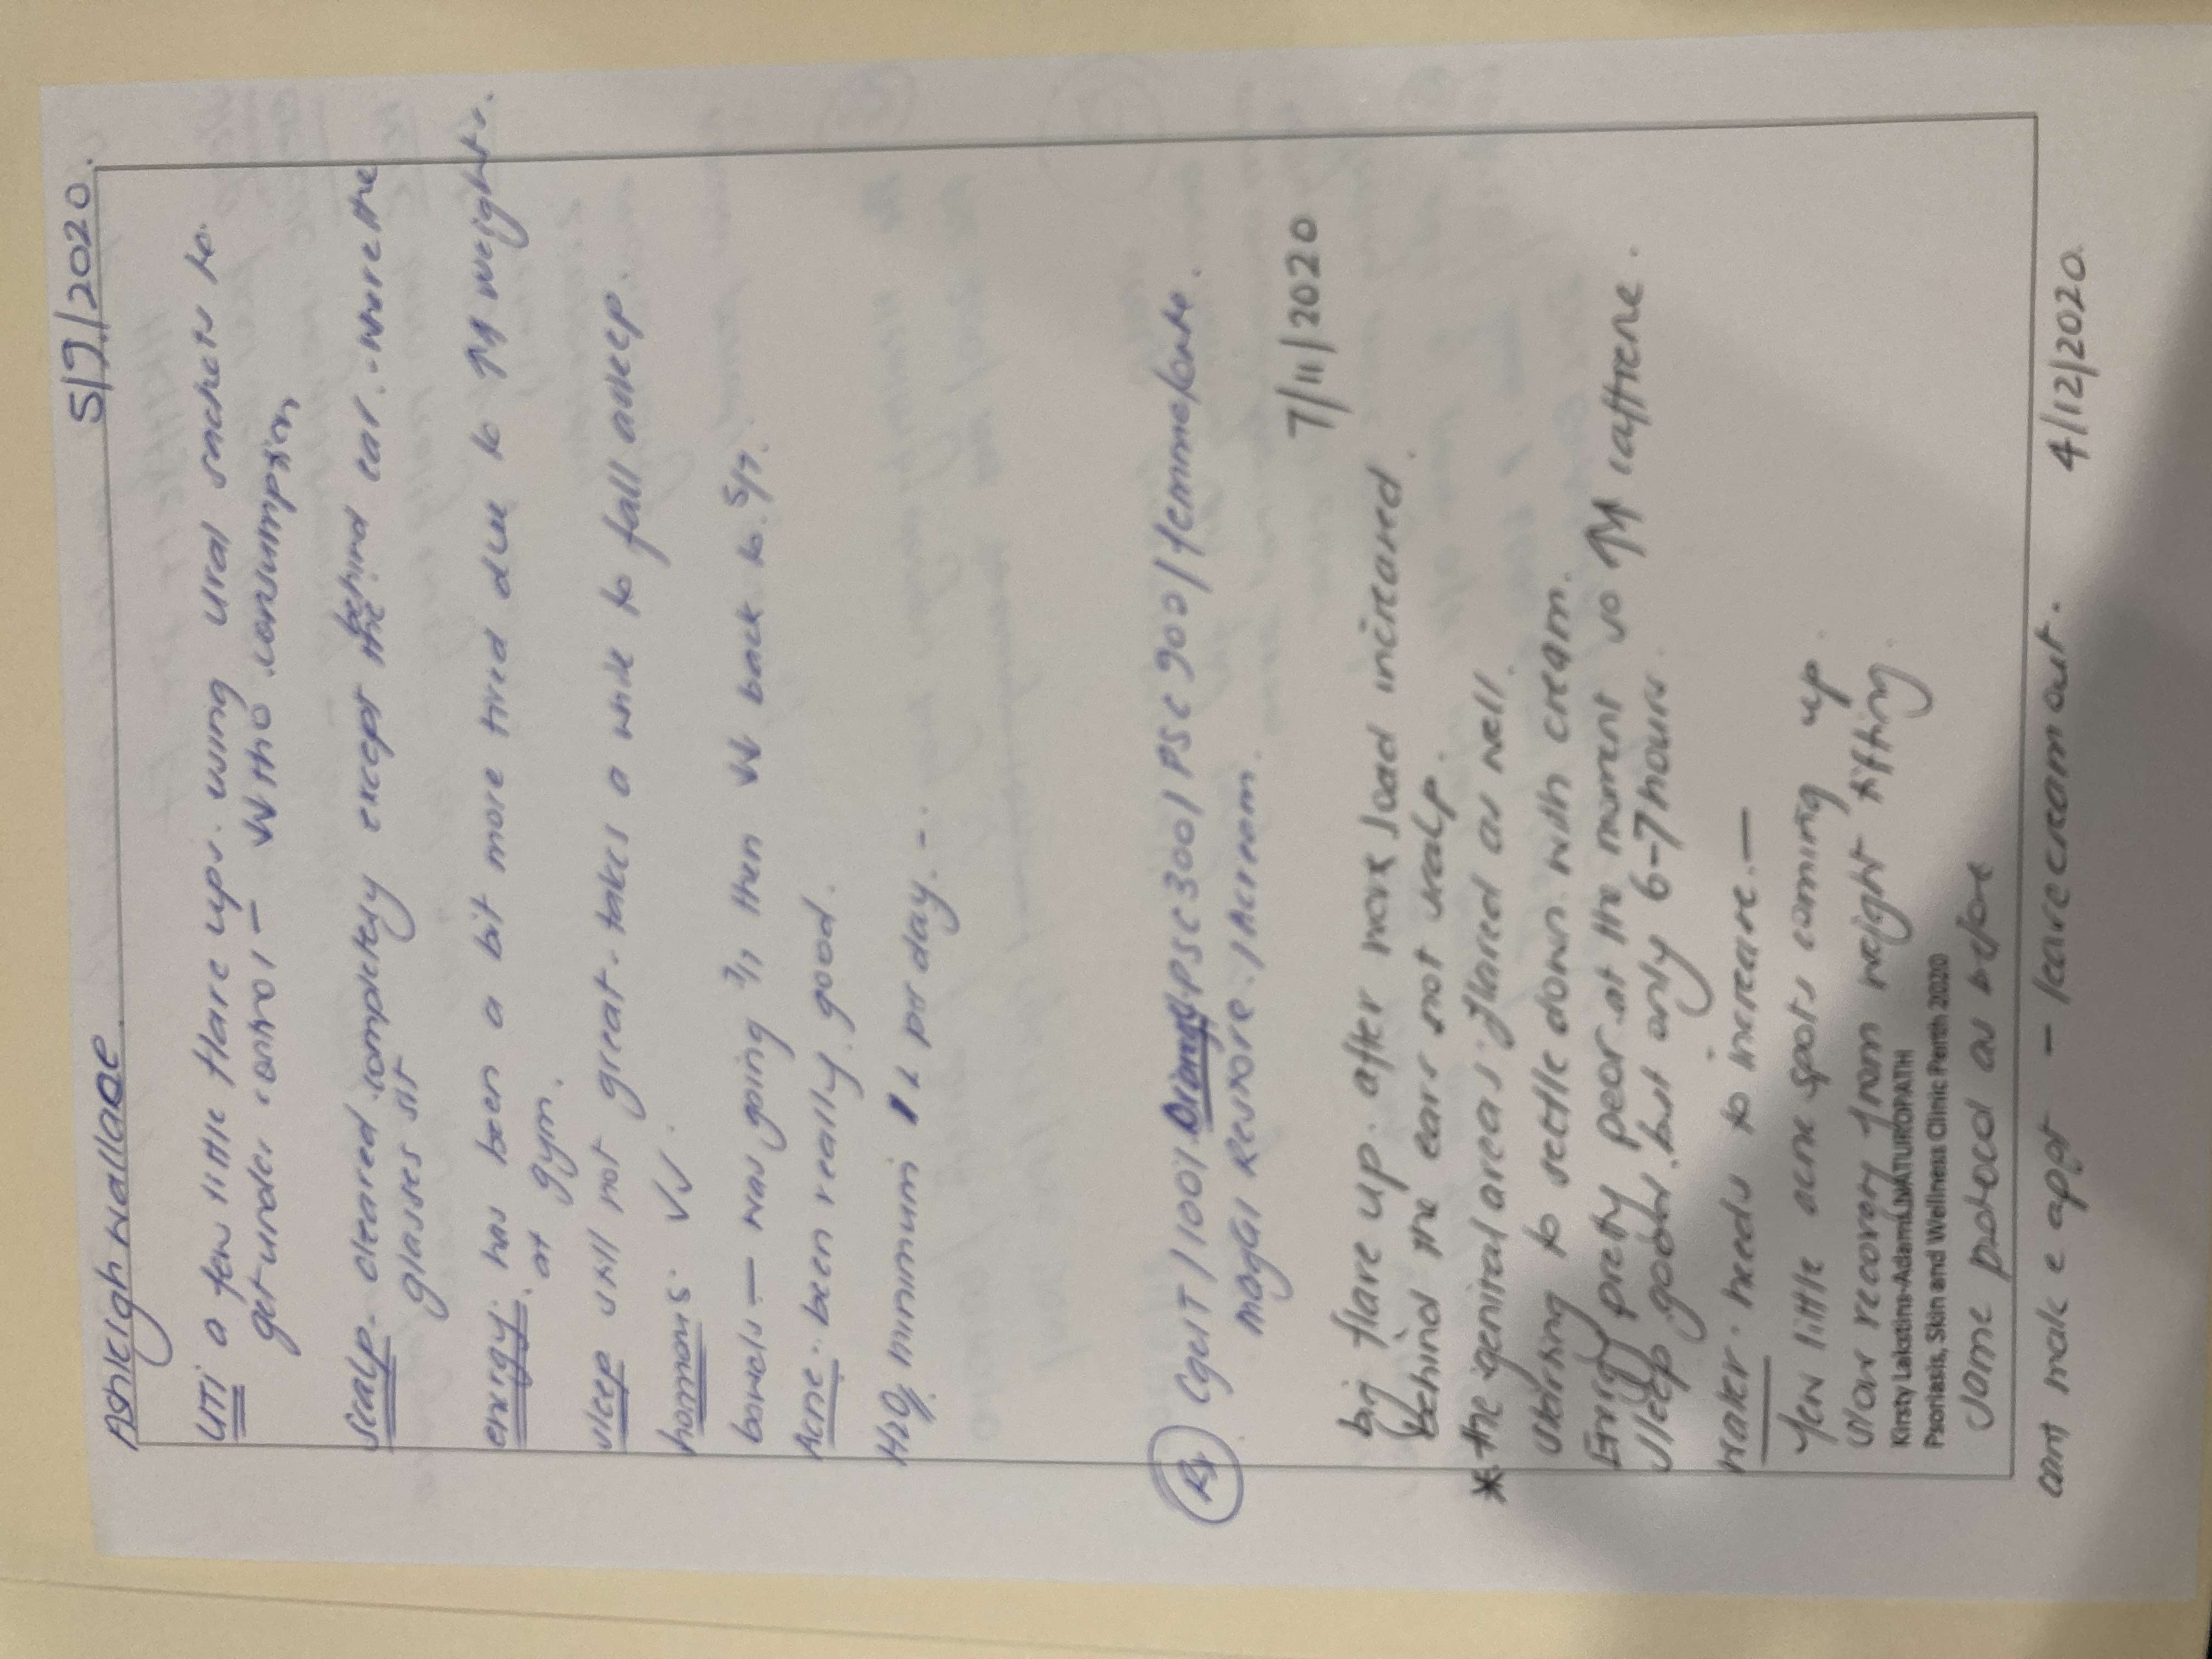 Ashleigh Wallace. 5/7/2020.
UTI a few little flare ups. using ural sachets to
get under control - ↓↓ H2O consumption
Scalp. cleared completely except the behind ear. - where the
glasses sit
energy: has been a bit more tired due to ↑↑ weights.
at gym.
sleep still not great. takes a while to fall asleep.
homons: ✓✓.
bowels - was going 7/7 then ↓↓ back to 5/7.
Acne. been really good.
H2O, minimum 1L per day. -.
Rx CgutT / 100 / PSC300 / PSC900 / femmeforte.
mag Restore.
7/11/2020
big flare up. after work load increased.
behind the ears not scalp.
* the genital areas: flared as well.
starting to settle down with cream.
Energy pretty poor at the moment so ↑↑ caffiene.
Sleep good, but only 6-7 hours.
water. needs to increase. -
few little acne spots coming up.
slow recovery from weight lifting.
Kirsty Lakstins-Adams NATUROPATH
Psoriasis, Skin and Wellness Clinic Perth 2020
same protocol as before
cant make appt - leave cream out. 4/12/2020.